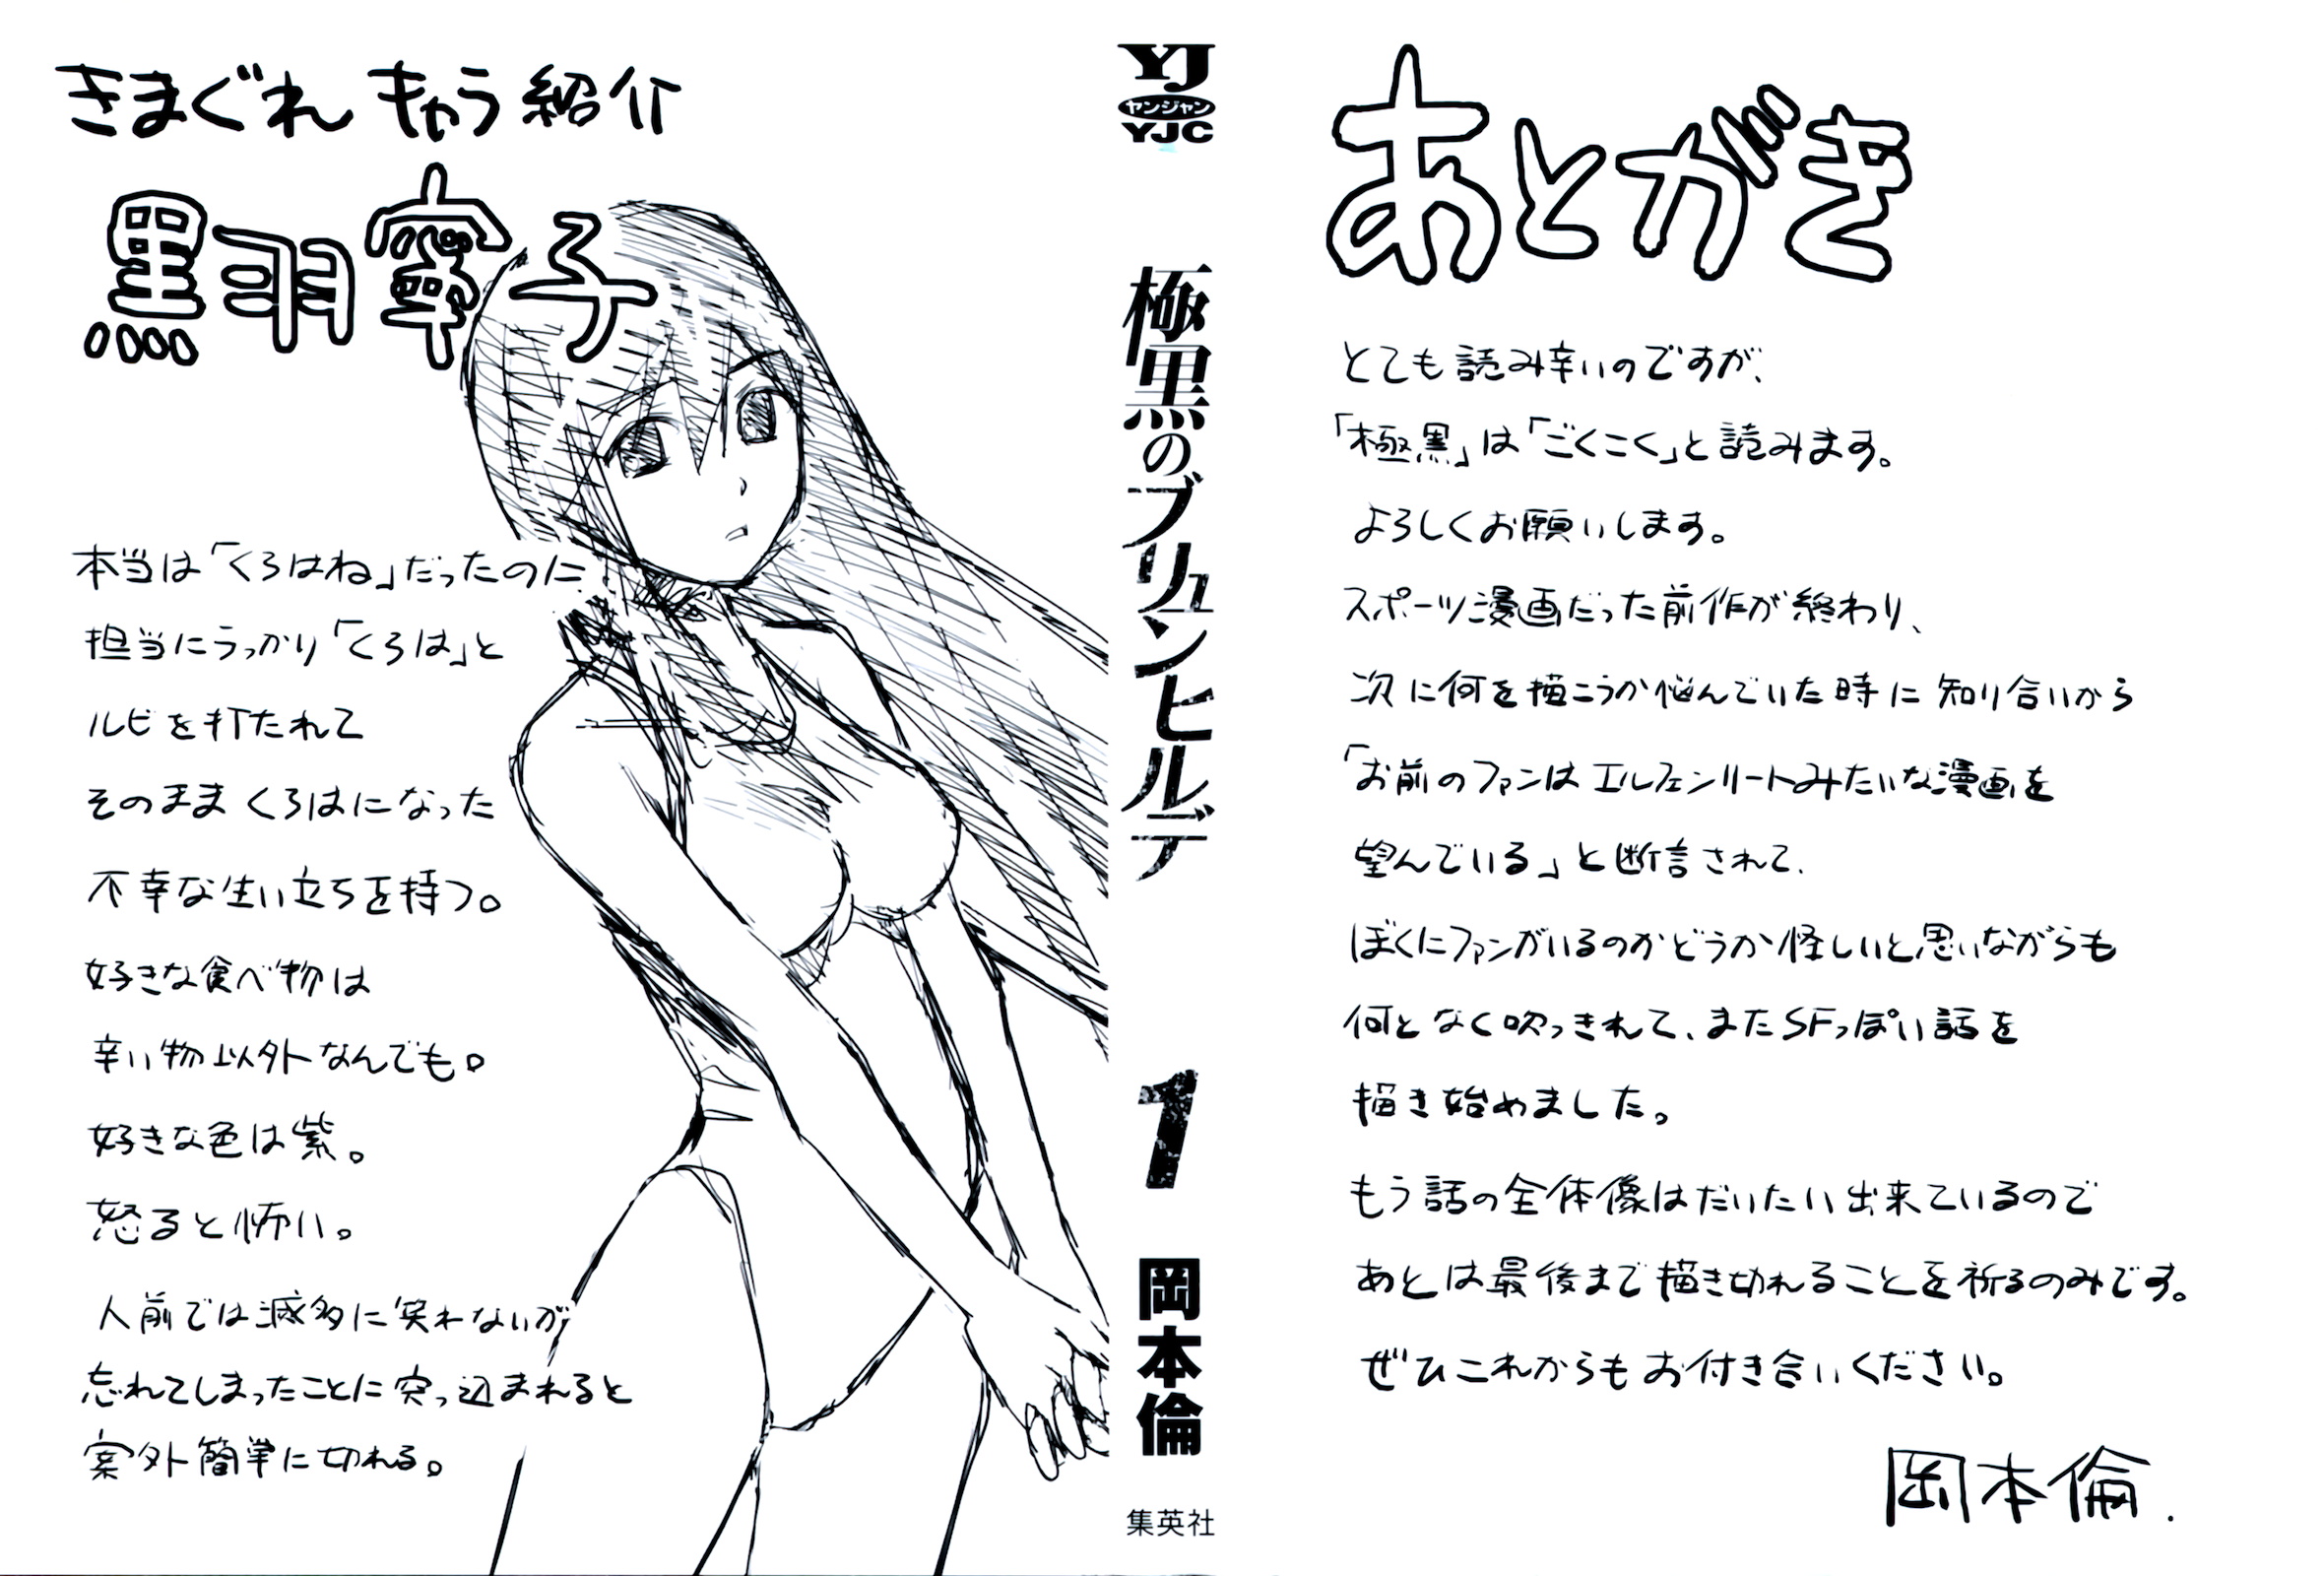 きまぐれ きゃラ紹介
黒羽寧子
本当は「くろはね」だったのに
担当にうっかり「くろは」と
ルビを打たれて
そのままくろはになった
不幸な生い立ちを持つ。
好きな食べ物は
辛い物以外なんでも。
好きな色は紫。
怒ると怖い。
人前では滅多に笑わないが
忘れてしまったことに突っ込まれると
案外簡単に切れる。
YJ
ヤンジャン
YJC
極黒のブリュンヒルデ
1
岡本倫
集英社
あとがき
とても読み辛いのですが、
「極黒」は「ごくこく」と読みます。
よろしくお願いします。
スポーツ漫画だった前作が終わり、
次に何を描こうか悩んでいた時に知り合いから
「お前のファンはエルフェンリートみたいな漫画を
望んでいる」と断言されて、
ぼくにファンがいるのかどうか怪しいと思いながらも
何となく吹っきれて、またSFっぽい話を
描き始めました。
もう話の全体像はだいたい出来ているので
あとは最後まで描き切れることを祈るのみです。
ぜひこれからもお付き合いください。
岡本倫.